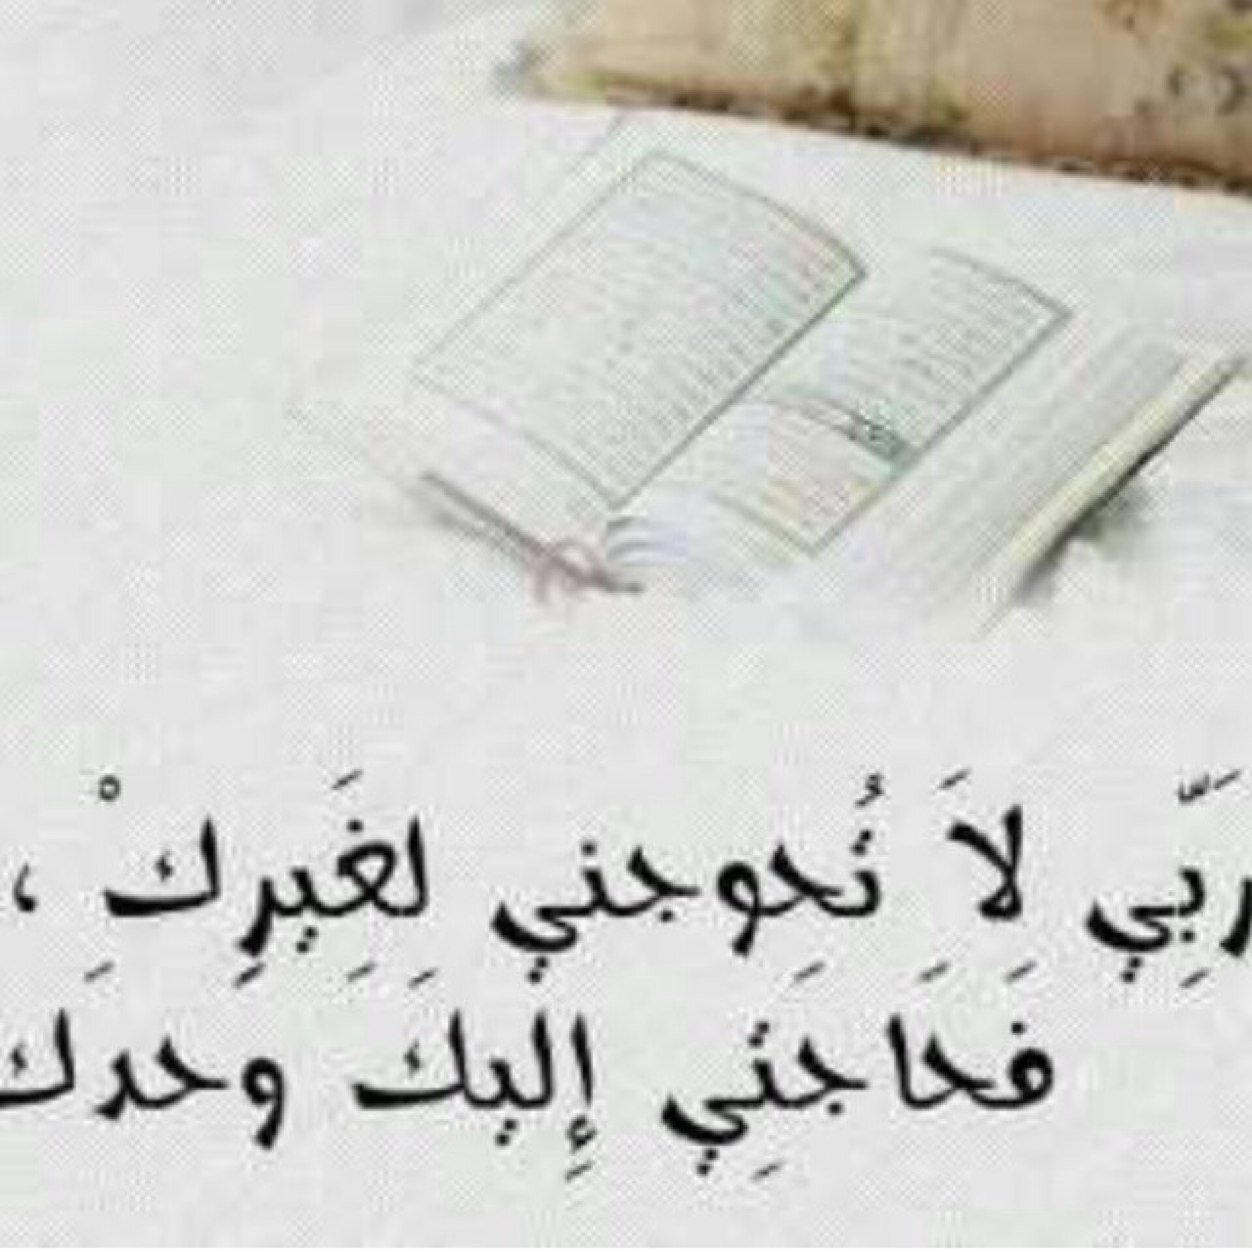 رَبِّي لاَ تُحوجني لغَيرِكْ ،
فَحَاجَتِي إِليكَ وَحدَك